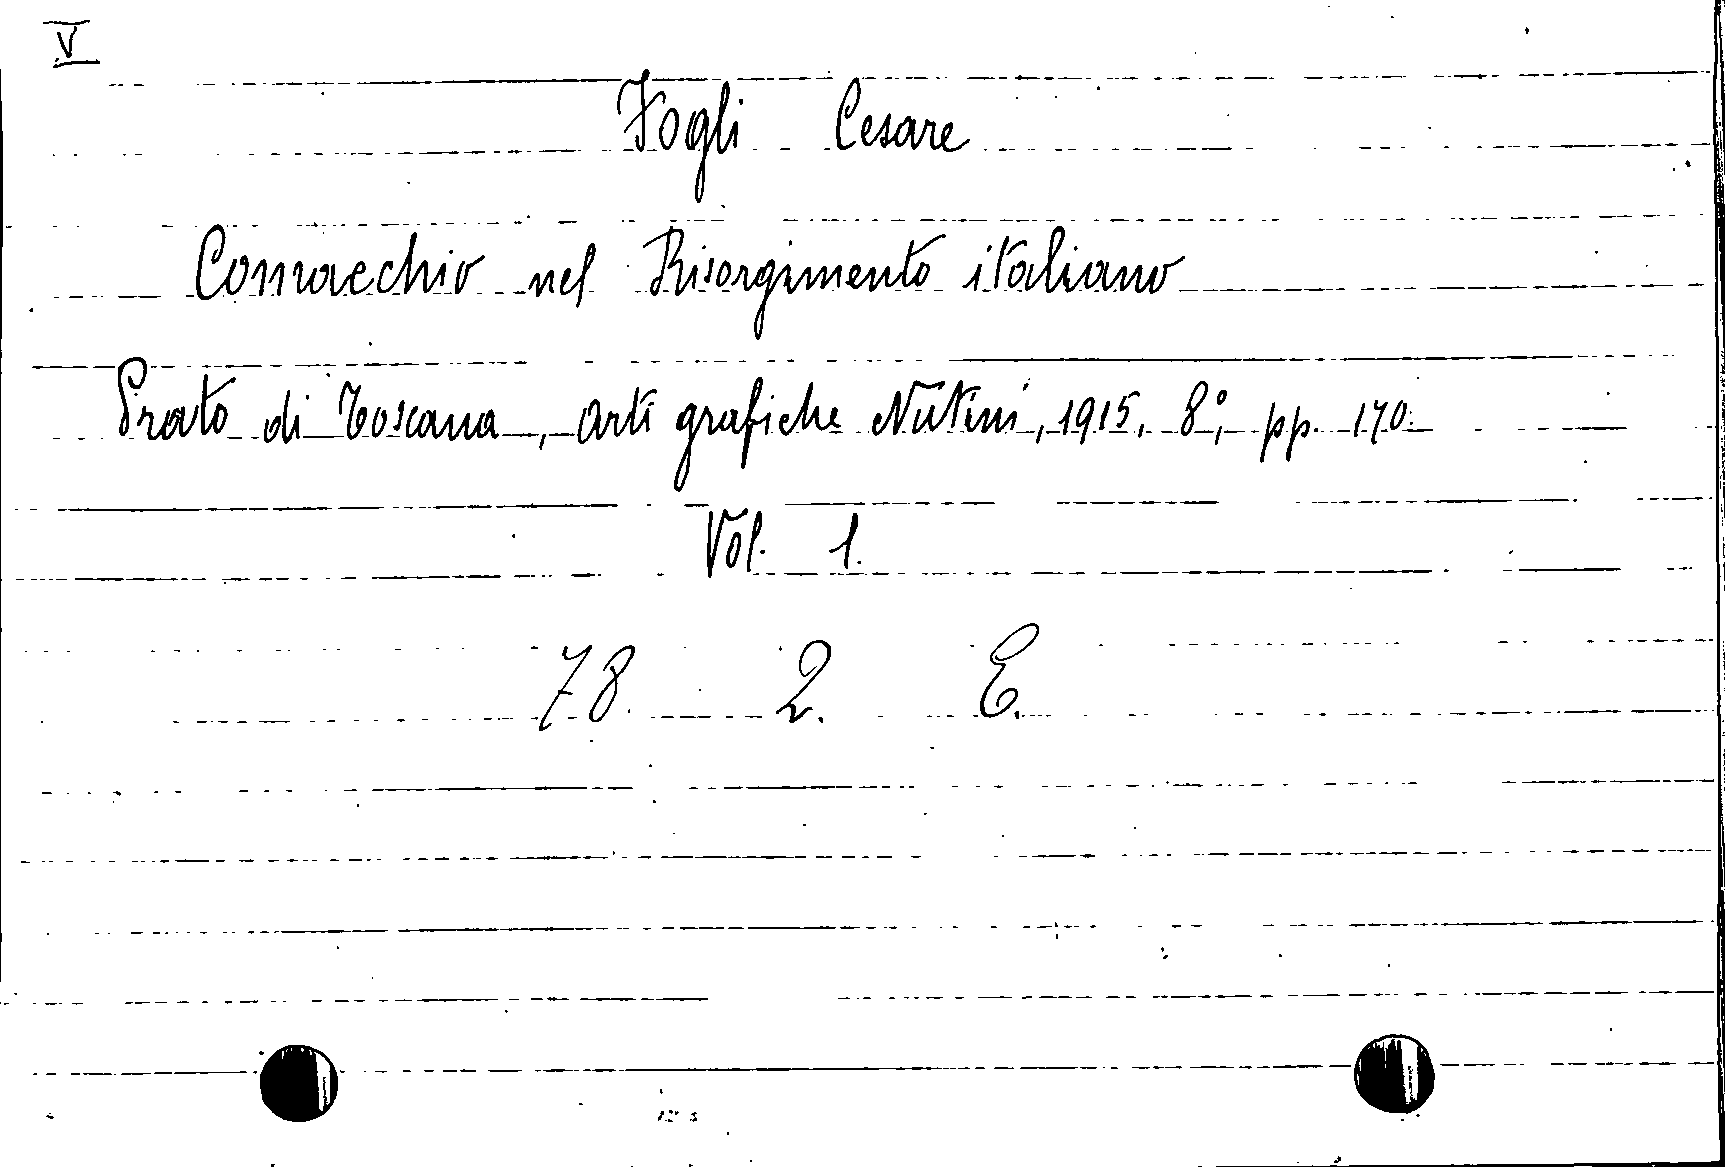 V
Fogli Cesare
Comacchio nel Risorgimento italiano
Prato di Toscana, Arti grafiche Nutini, 1915, 8°, pp. 170.
Vol. 1.
78. 2. E.